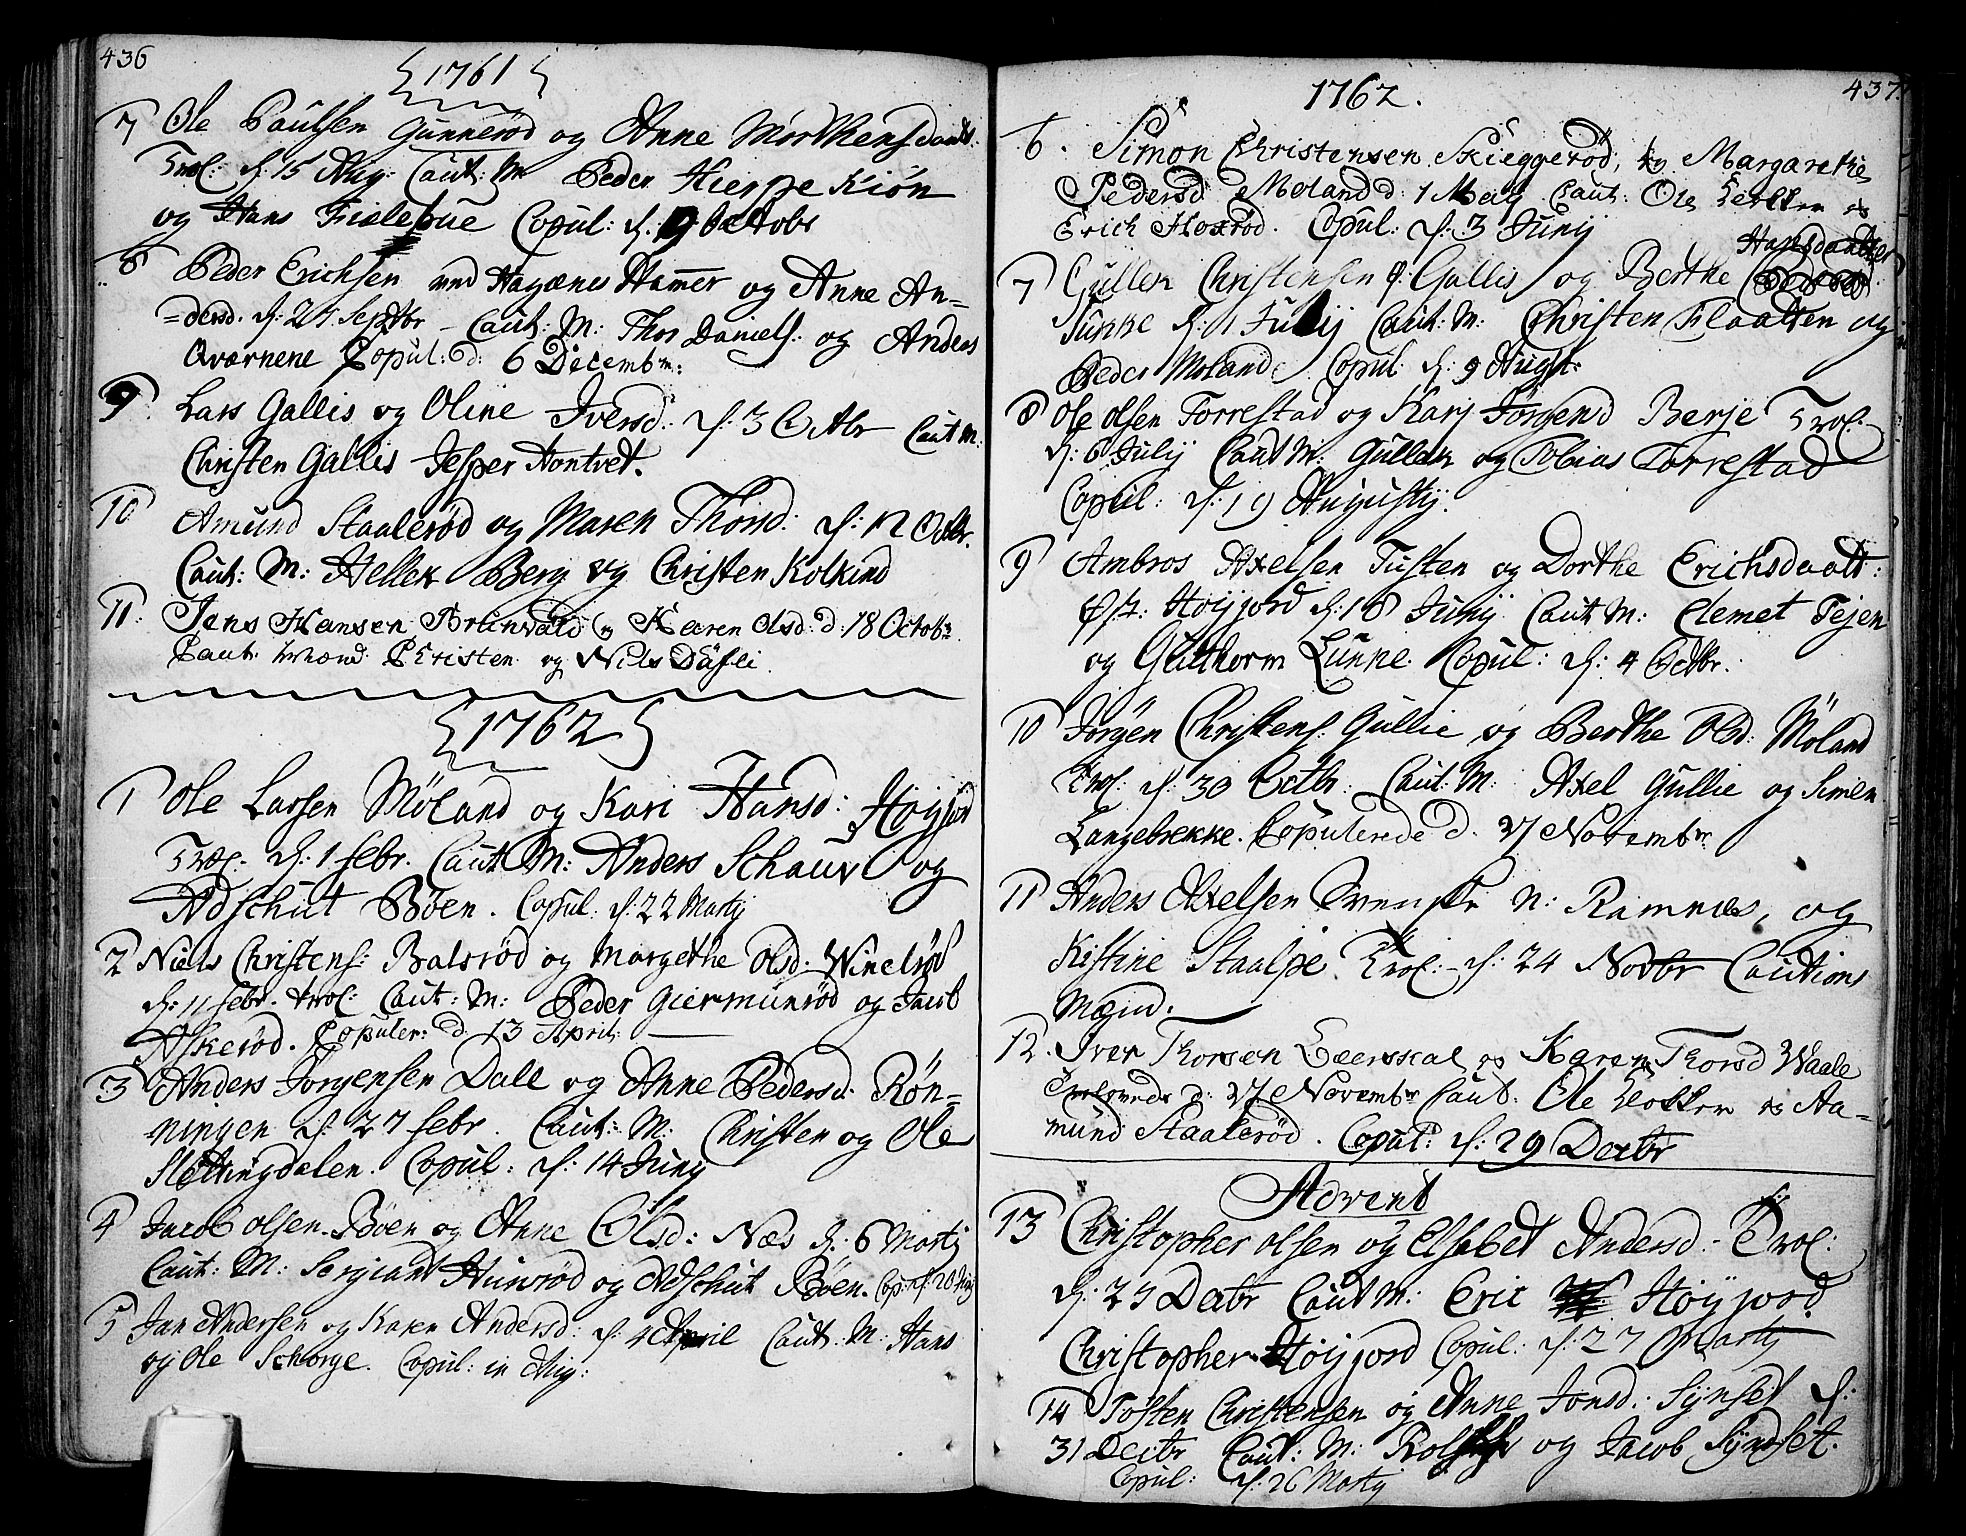 436
1761
7 Ole Paulsen Gunnerød og Anne Morthensdaatt:
Trol: d: 15 Aug: Caut: M Peder Hierpekiøn
og Hans Fislebue Copul: d. 9 octobr
8 Peder Erichsen ved Hagænes Hamer og Anne An=
=dersd. d: 25 Septbr – Caut: M: Thor Daniels: og Anders
Qvarnene Copul: d: 6 Decembr:
9 Lars Gallis og Oline Iversd: d: 3 Octbr Caut M:
Christen Gallis Jesper Hontvet.
10 Amund Staalerød og Maren Thorsd: d: 12 Octbr.
Caut: M: Hellek Berg og Christen Kolkind
11. Jens Hansen Brunvald og Karen Olsd: d: 18 Octobr
Caut. Mænd Christen og Nils Dufli.
1762
1 Ole Larsen Møland og Kari Hansd: Høyjord
Trol: d: 1 febr. Caut M: Anders Schauv og
Adschut Bøen. Copul: d: 22 Martij
2 Niels Christens: Balsrød og Margethe Olsd: Winelrød
d: 11 febr. trol: Caut: M: Peder Giermunrød og Jacob
Askerød. Copuler: d. 13 April:
3 Anders Jørgensen Dall og Anne Pedersd: Røn=
ningen d: 27 febr. Caut: M: Christen og Ole
Slettingdalen. Copul: d: 14 Junÿ
4 Jacob olsen Bøen og Anne Olsd: Næs d: 6 Martij
Caut: M: Sergiant Hunsrød og Adschut Bøen. Cop: d: 20 Junÿ
5 Jan Andersen og Karen Andersd: d: 4 April Caut. M: Hans
og Ole Schorge. Copul: in Aug:
437.
1762.
6. Simon Christensen Skieggerød, og Margarethe
Pedersd Moland d: 1 Maij Caut: Ole Klokker og
Erich Floxrød. Copul: d: 3 Junij
Hansdaatter
7 Gullek Christensen Gallis og Berthe
Sukke d: 1 Julij Caut: M: Christen Flaatten og
Peder Moland Copul d: 9 Augst:
8 Ole olsen Torrestad og Karj Jørgensd Berje Trol:
d: 6 Julij Caut M: Gullek og Tobias Torrestad
Copul: d: 19 Augustij.
9 Ambros Axelsen Tuften og Dorthe Erichsdaatt:
Høijjord d: 18 Junij Caut M: Clemet Tejen
og Gulthorm Lunne. Copul: d: 4 Octbr.
10 Jørgen Christens: Gullie og Berthe Olsd: Møland
Trol: d: 30 Octbr. Caut: M: Axel Gullie og Simen
Langebrekke. Copulerede d. 27 Novembr
11 Anders Axelsen Svenske n: Ramnæs, og
Kistine Staalpe. Trol: d: 24 Novbr Cautions
Mænd.
12. Iver Thorsen Leerskal og Karen Thorsd Waale
Trolovede d: 27 Novembr Caut. Ole Klokker og Aa=
mund Staalerød. Copul: d: 29 Decbr
Advent
13 Christopher olsen og Elsebet Andersd: Trol:
d: 25 Decbr Caut M: Eric Høyjord
Christopher Høijjord Copul: d: 27 Martij
14 Tosten Christensen og Anne Jonsd: Synset d:
31 Decbr Caut: M: og Jacob Syndset.
Copul: d: 26 Martij